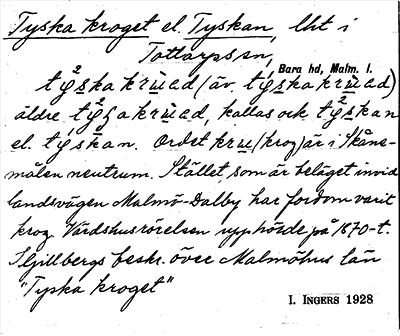 Tyska kroget el. Tyskan, lht i
Tottarps sn,
Bara hd, Malm. l.
(äv.
äldre kallas och
el. Ordet (krog) är i Skåne-
målen neutrum. Stället, som är beläget invid
landsvägen Malmö-Dalby har fordom varit
krog. Värdshusrörelsen upphörde på 1870-t.
I Gjillbergs beskr. över Malmöhus län
"Tyska kroget"
I. INGERS 1928